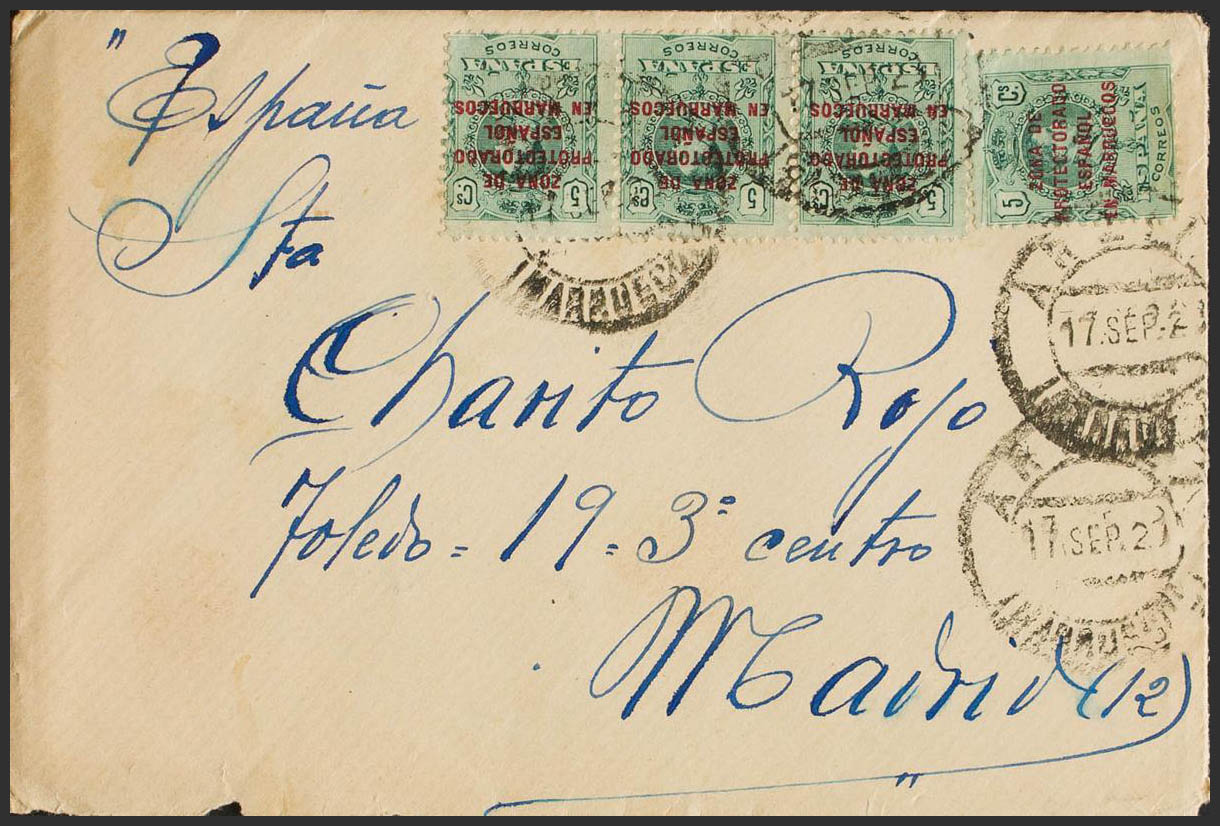 " España
CORREOS
ESPAÑA
ZONA DE
PROTECTORADO
ESPAÑOL
EN MARRUECOS
5 Cs
CORREOS
ESPAÑA
ZONA DE
PROTECTORADO
ESPAÑOL
EN MARRUECOS
5 Cs
CORREOS
ESPAÑA
ZONA DE
PROTECTORADO
ESPAÑOL
EN MARRUECOS
5 Cs
5 Cs
ZONA DE
PROTECTORADO
ESPAÑOL
EN MARRUECOS
ESPAÑA
CORREOS
Sta
Charito Rojo
17.SEP.2
Toledo = 19 = 3º centro
17.SEP.2
(MARRUECOS)
Madrid (12)
"